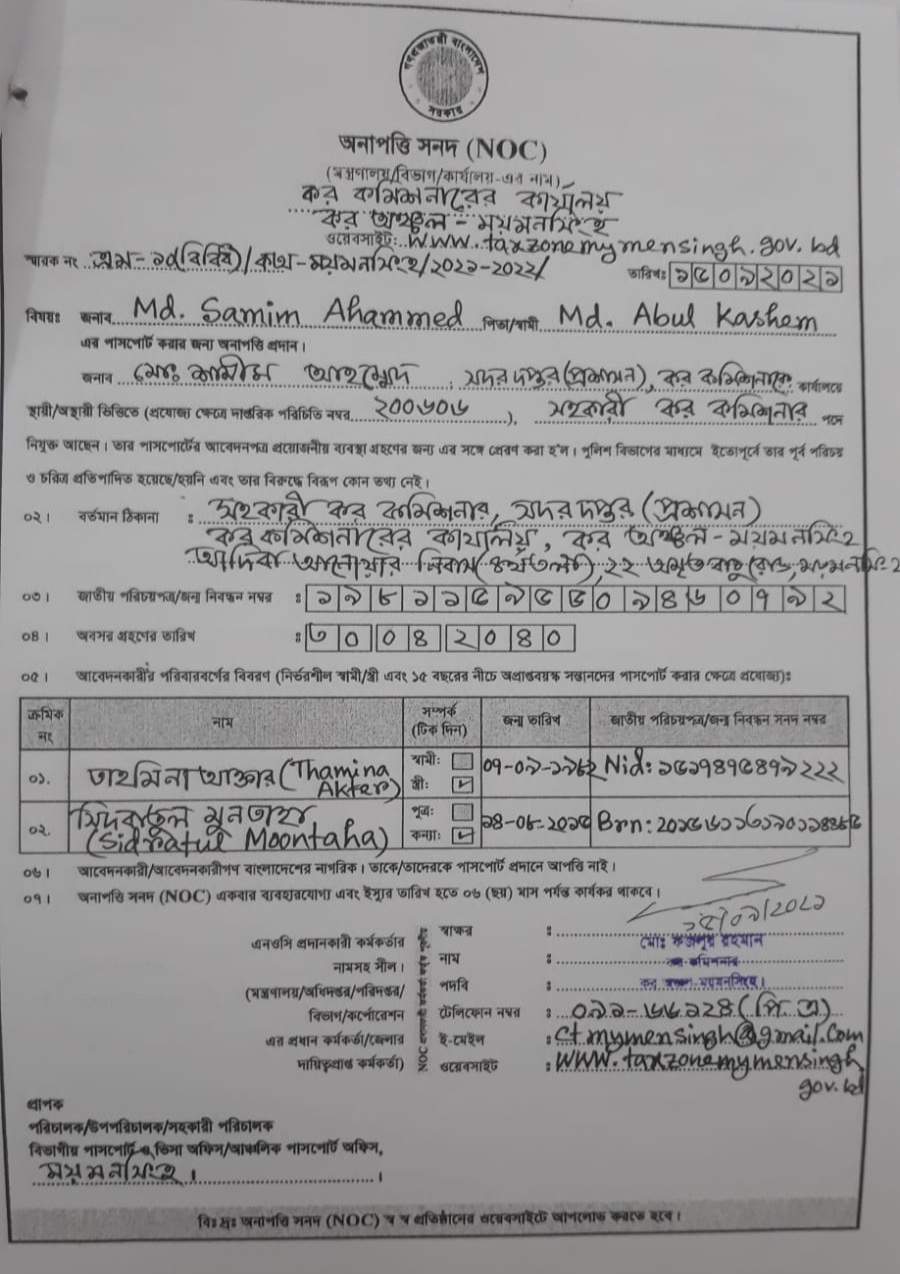 গণপ্রজাতন্ত্রী বাংলাদেশ
সরকার
অনাপত্তি সনদ (NOC)
(মন্ত্রণালয়/বিভাগ/কার্যালয়-এর নাম)
কর কমিশনারের কার্যালয়
কর অঞ্চল - ময়মনসিংহ
ওয়েবসাইট: www.taxzonemymensingh.gov.bd
স্মারক নং (বিবিধ)/কঅ-ময়মনসিংহ/২০২১-২০২২/ তারিখঃ ১৫০৯২০২১
বিষয়ঃ জনাব Md. Samim Ahammed পিতা/স্বামী Md. Abul Kashem
এর পাসপোর্ট করার জন্য অনাপত্তি প্রদান।
জনাব মোঃ শামীম আহম্মেদ, সদর দপ্তর (প্রশাসন), কর কমিশনারের কার্যালয়ে
স্থায়ী/অস্থায়ী ভিত্তিতে (প্রযোজ্য ক্ষেত্রে দাপ্তরিক পরিচিতি নম্বর ২০০৬০৬), সহকারী কর কমিশনার পদে
নিযুক্ত আছেন। তার পাসপোর্টের আবেদনপত্র প্রয়োজনীয় ব্যবস্থা গ্রহণের জন্য এর সঙ্গে প্রেরণ করা হ'ল। পুলিশ বিভাগের মাধ্যমে ইতোপূর্বে তার পূর্ব পরিচয়
ও চরিত্র প্রতিপাদিত হয়েছে/হয়নি এবং তার বিরুদ্ধে বিরূপ কোন তথ্য নেই।
০২। বর্তমান ঠিকানা : সহকারী কর কমিশনার, সদর দপ্তর (প্রশাসন)
কর কমিশনারের কার্যালয়, কর অঞ্চল - ময়মনসিংহ
আদিবা আনোয়ার নিবাস (৪র্থ তলা), ২২ অমৃত বাবু রোড, ময়মনসিংহ
০৩। জাতীয় পরিচয়পত্র/জন্ম নিবন্ধন নম্বর : ১৯৮১১৫৯৫৫০৯৪৬০৭৯২
০৪। অবসর গ্রহণের তারিখ : ৩০০৪২০৪০
০৫। আবেদনকারীর পরিবারবর্গের বিবরণ (নির্ভরশীল স্বামী/স্ত্রী এবং ১৫ বছরের নীচে অপ্রাপ্তবয়স্ক সন্তানদের পাসপোর্ট করার ক্ষেত্রে প্রযোজ্য)ঃ
ক্রমিক নং নাম সম্পর্ক (টিক দিন) জন্ম তারিখ জাতীয় পরিচয়পত্র/জন্ম নিবন্ধন সনদ নম্বর
০১. তাহমিনা আক্তার (Thamina Akter) স্বামী: স্ত্রী: ০৭-০৯-১৯৮২ Nid: ১৫১৭৪৭৫৪৭৯২২২
০২. সিদরাতুল মুনতাহা (Sidratul Moontaha) পুত্র: কন্যা: ১৪-০৮-২০১৫ Brn:
০৬। আবেদনকারী/আবেদনকারীগণ বাংলাদেশের নাগরিক। তাকে/তাদেরকে পাসপোর্ট প্রদানে আপত্তি নাই।
০৭। অনাপত্তি সনদ (NOC) একবার ব্যবহারযোগ্য এবং ইস্যুর তারিখ হতে ০৬ (ছয়) মাস পর্যন্ত কার্যকর থাকবে।
১৫/০৯/২০২১
স্বাক্ষর :
এনওসি প্রদানকারী কর্মকর্তার
নামসহ সীল।
নাম : মোঃ ফজলুর রহমান
কর কমিশনার
(মন্ত্রণালয়/অধিদপ্তর/পরিদপ্তর/
পদবি : কর অঞ্চল-ময়মনসিংহ।
বিভাগ/কর্পোরেশন
টেলিফোন নম্বর : ০৯১-৬৬১২৪ (পি.এ)
এর প্রধান কর্মকর্তা/জেলার
ই-মেইল : ct.mymensingh@gmail.com
দায়িত্বপ্রাপ্ত কর্মকর্তা)
ওয়েবসাইট : www.taxzonemymensingh
gov.bd
প্রাপক
পরিচালক/উপপরিচালক/সহকারী পরিচালক
বিভাগীয় পাসপোর্ট ও ভিসা অফিস/আঞ্চলিক পাসপোর্ট অফিস,
ময়মনসিংহ।
বিঃ দ্রঃ অনাপত্তি সনদ (NOC) স্ব স্ব প্রতিষ্ঠানের ওয়েবসাইটে আপলোড করতে হবে।